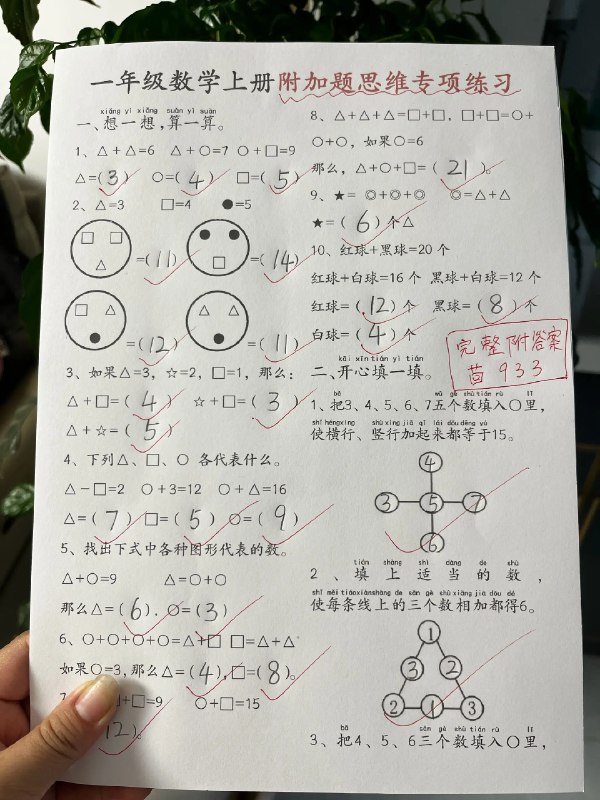 一年级数学上册附加题思维专项练习
xiǎng yi xiǎng suàn yi suàn
一、想一想,算一算。
1、△+△=6 △+○=7 ○+□=9
△=(3) ○=(4) □=(5)
2、△=3 □=4 ●=5
=(11) =(14)
=(12) =(11)
3、如果△=3,☆=2,□=1,那么:
△+□=(4) ☆+□=(3)
△+☆=(5)
4、下列△、□、○ 各代表什么。
△-□=2 ○+3=12 ○+△=16
△=(7) □=(5) ○=(9)
5、找出下式中各种图形代表的数。
△+○=9 △=○+○
那么△=(6). ○=(3)
6、○+○+○+○=△+□ □=△+△
如果○=3,那么△=(4),□=(8)。
+□=9 ○+□=15
12)。
8、△+△+△=□+□, □+□=○+
○+○, 如果○=6
那么, △+○+□=(21)。
9、★= ◎+◎+◎ ◎=△+△
★=(6)个△
10、红球+黑球=20 个
红球+白球=16 个 黑球+白球=12 个
红球=(12)个 黑球=(8)个
白球=(4)个
完整附答案
苗 933
kāi xīn tián yì tián
二、开心填一填。
bǎ wǔ gè shù tián rù lǐ
1、把3、4、5、6、7五个数填入○里,
shǐ héngxíng shùxíng jiā qǐ lái dōu děng yú
使横行、竖行加起来都等于15。
4
3 5 7
6
tián shàng shì dàng de shù
2、填上适当的数,
shǐ měi tiáoxiànshàng de sān gè shù xiāng jiā dōu dé
使每条线上的三个数相加都得6。
1
3 2
2 1 3
bǎ sān gè shù tián rù lǐ
3、把4、5、6三个数填入○里,